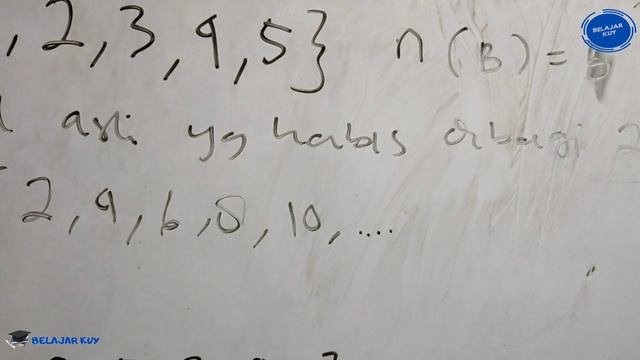 BELAJAR KUY
, 2, 3, 4, 5} n(B) =
asli yg habis dibagi 2
2, 4, 6, 8, 10, ....
BELAJAR KUY